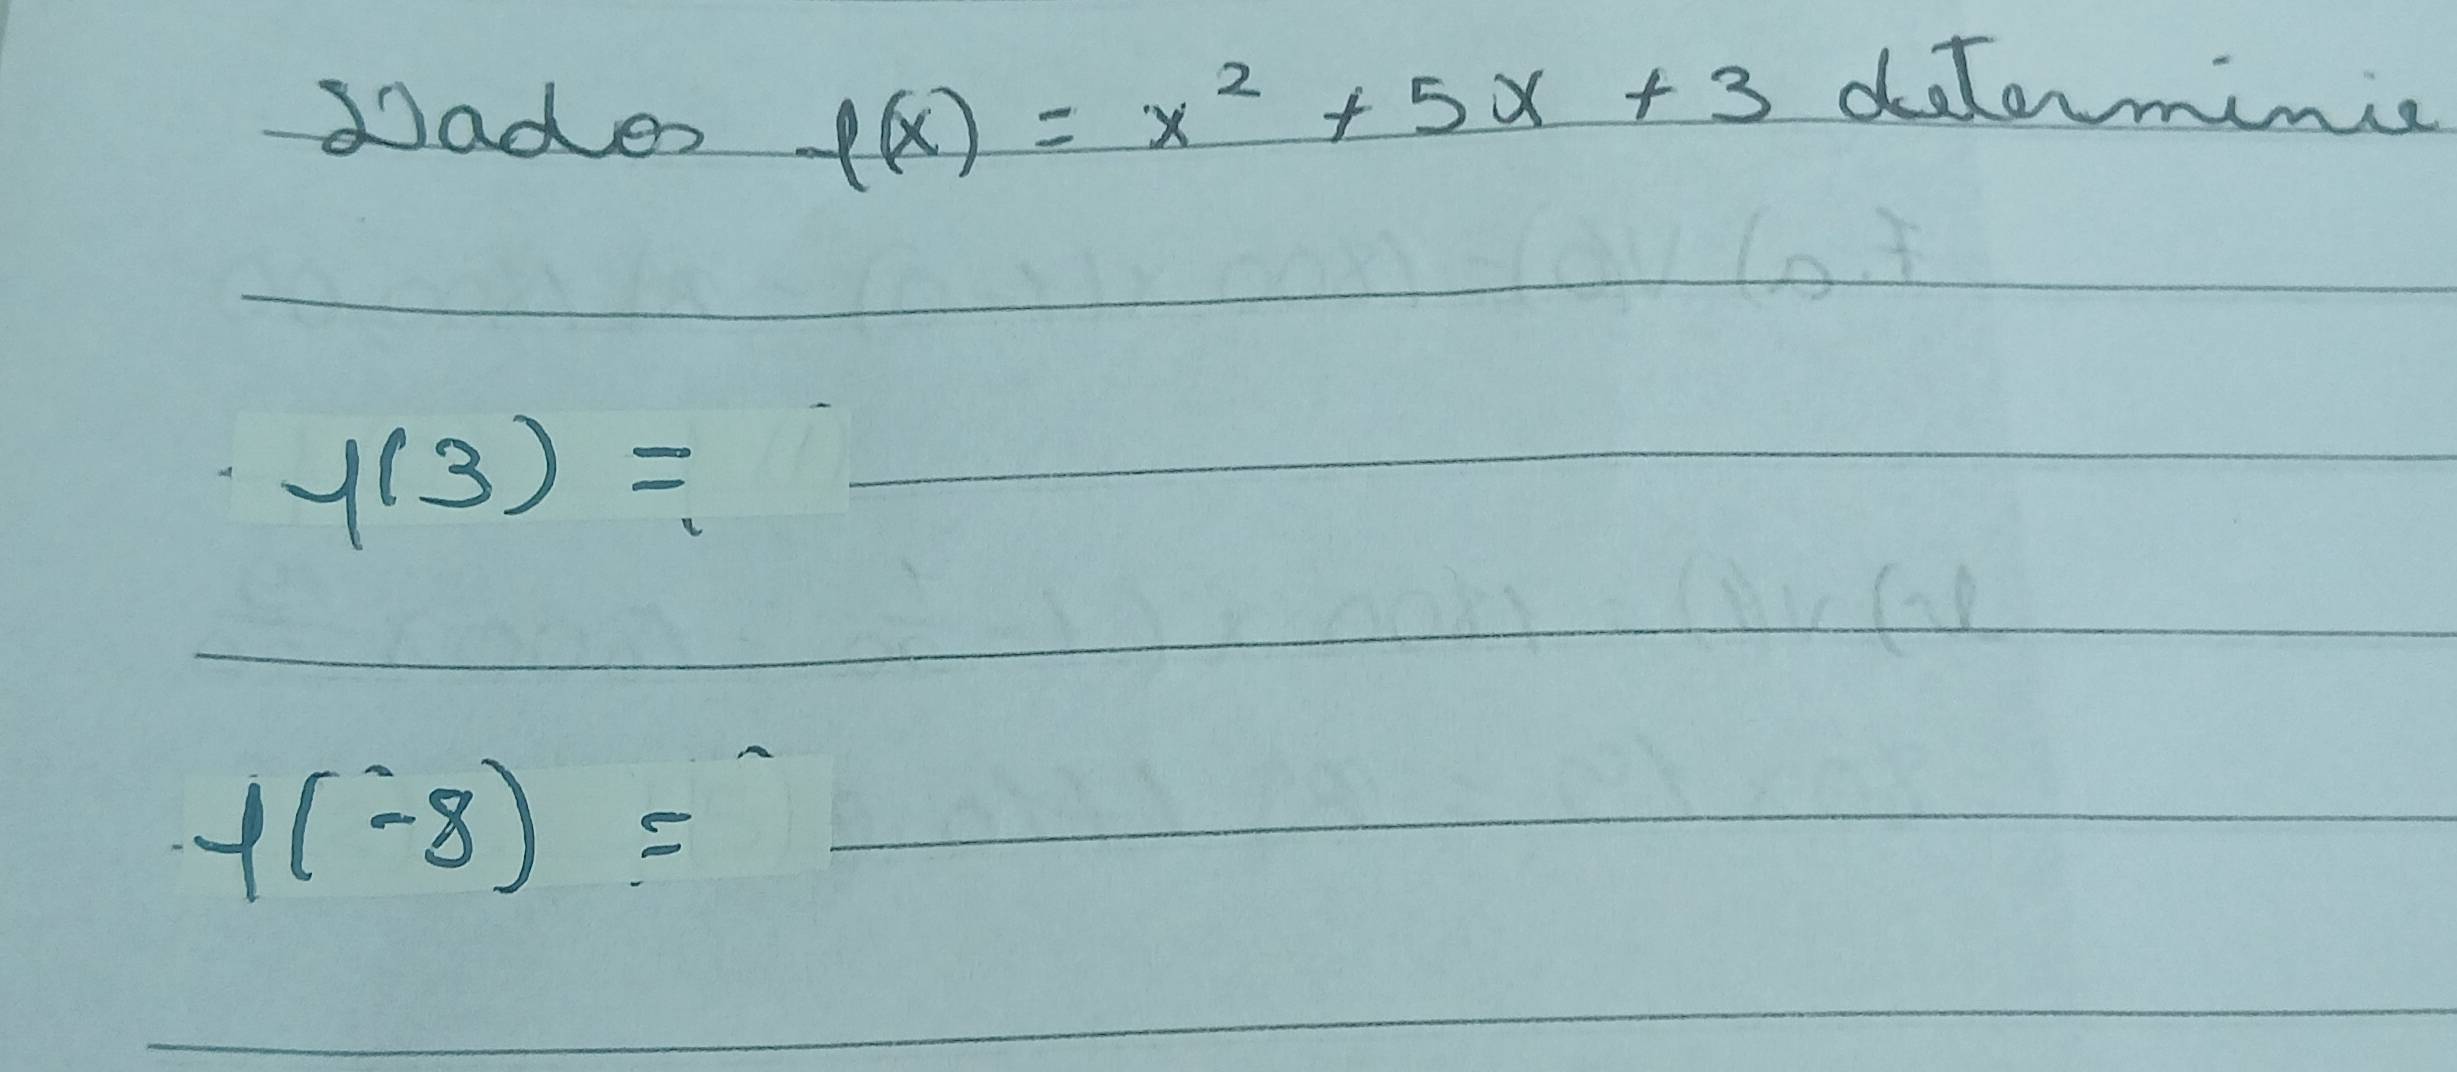 Dados f(x) = x² + 5x + 3 determinie
f(3) =
f(-8) =